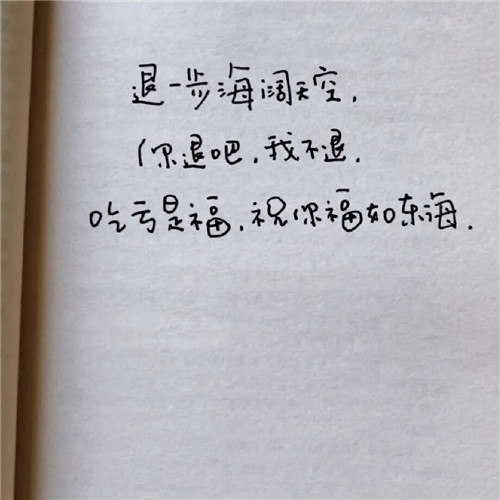 退一步海阔天空.
你退吧,我不退.
吃亏是福,祝你福如东海.